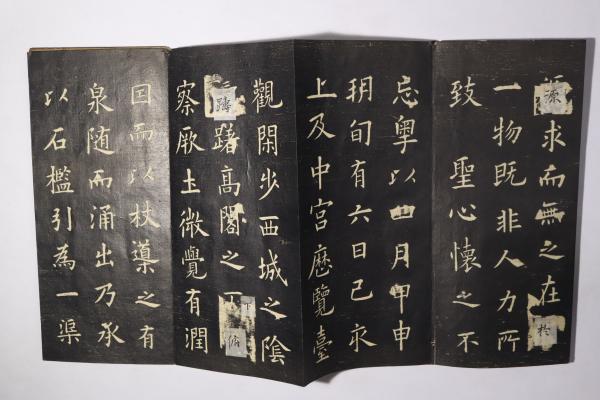 源求而無之在於
一物既非人力所
致 聖心懷之不
忘粵以四月甲申
朔旬有六日己亥
上及中宮歷覽臺
觀閑步西城之陰
躊躇高閣之下俯
察厥土微覺有潤
因而以杖導之有
泉随而涌出乃承
以石檻引為一渠